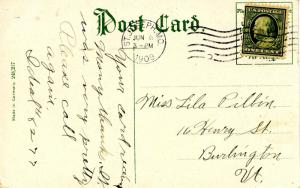 Post Card.
JUN 6
3-PM
1909
U.S. POSTAGE
ONE CENT
Made in Germany
Your card rec'd
Many thanks. It
was very pretty
Please call
again.
Miss Lila Pillin
16 Henry St.
Burlington
Vt.